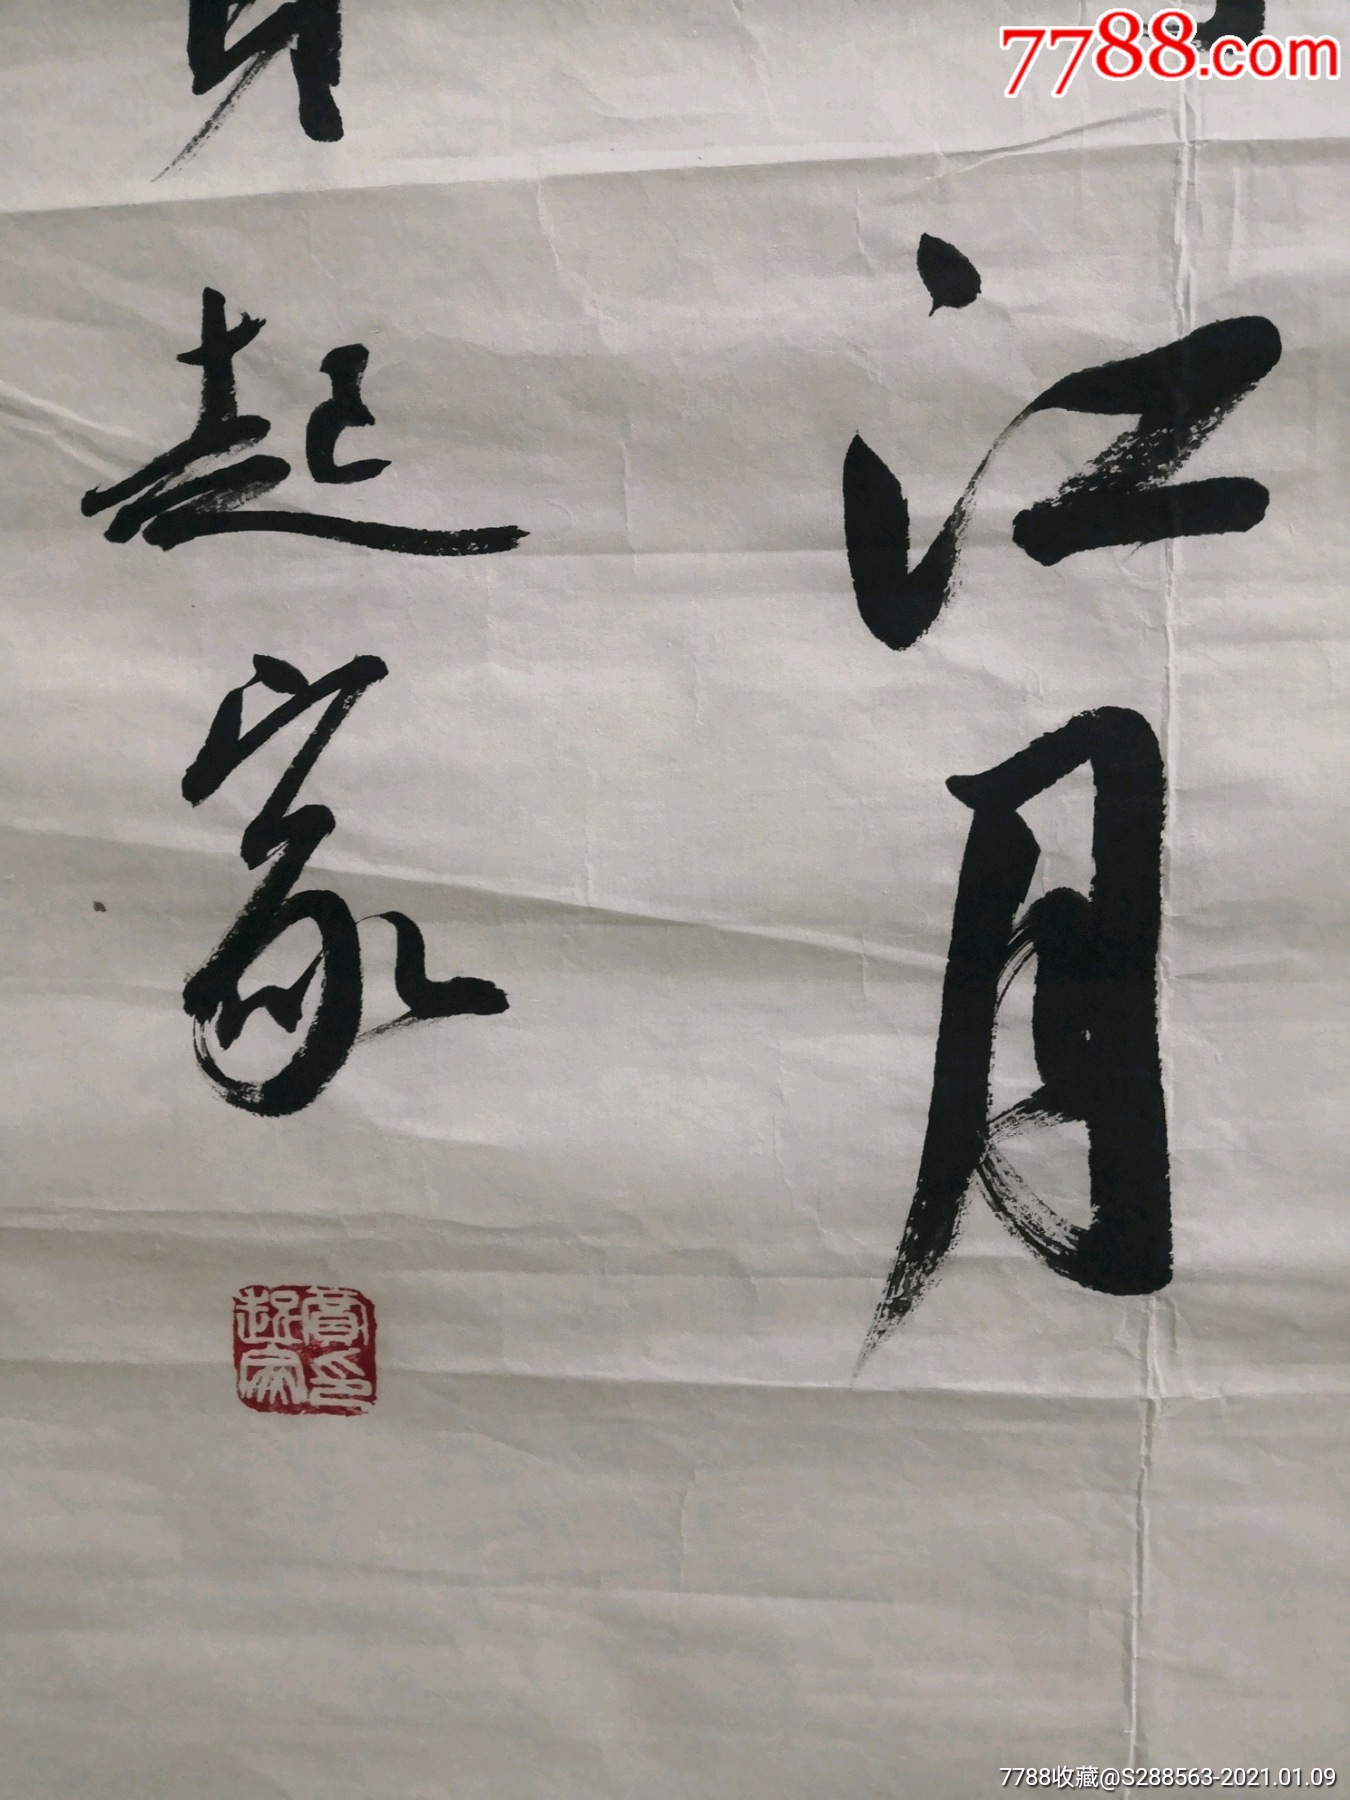 7788.com
江月
起家
7788收藏@S288563-2021.01.09